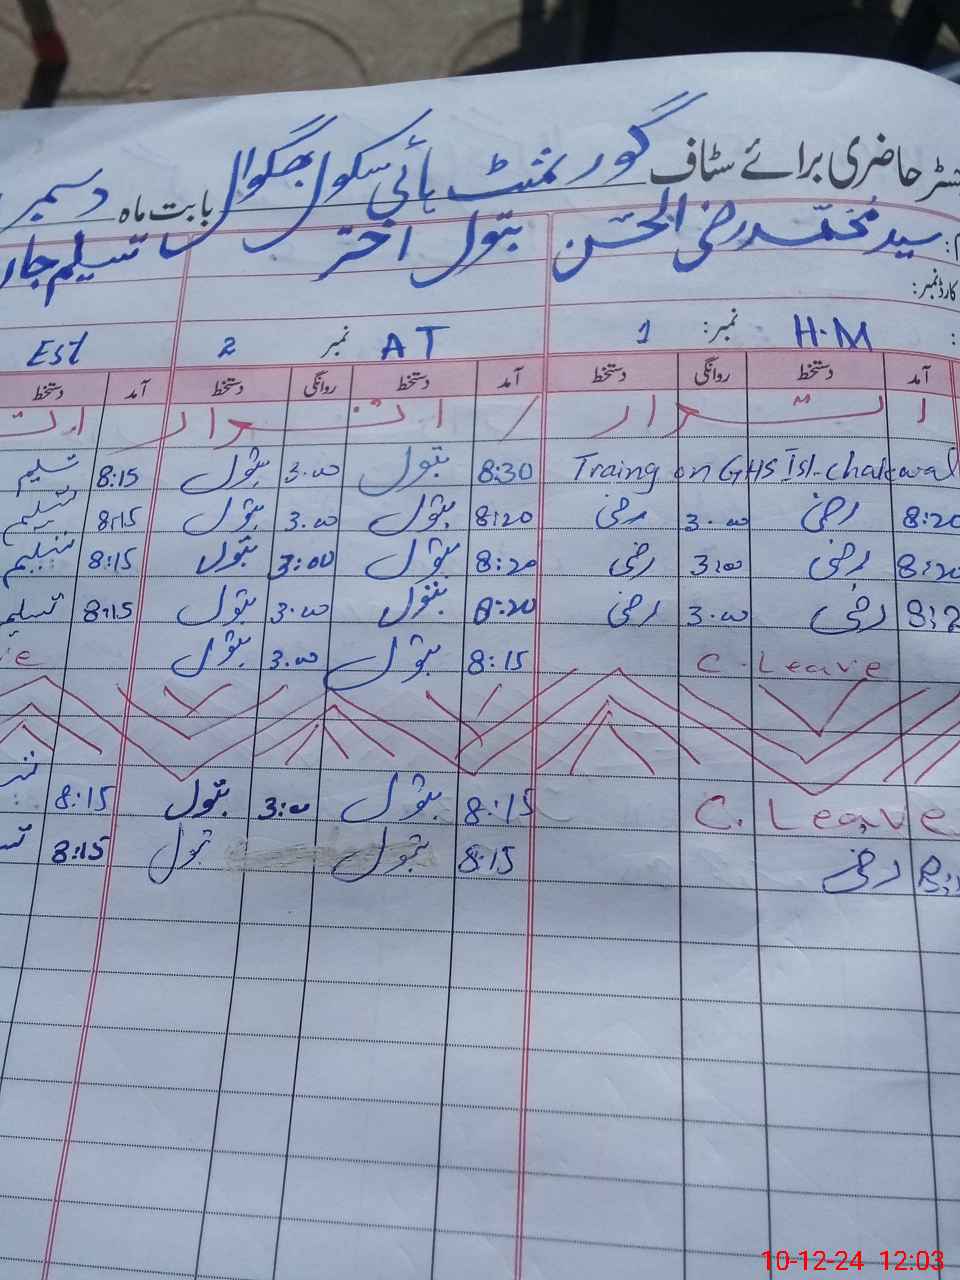 سٹر حاضری برائے سٹاف گورنمنٹ ہائی سکول بھگوال بابت ماہ دسمبر
سید محمد رضی الحسن بتول اختر تسلیم
کارڈ نمبر:
H.M نمبر: 1 AT نمبر 2 Est
آمد دستخط روانگی دستخط آمد دستخط روانگی دستخط آمد دستخط
اتـــــوار اتـــــوار
Traing on GHS Isl. chakwal 8:30 بتول 3:00 بتول 8:15 تسلیم
8:20 رضی 3:00 رضی 8:20 بتول 3:00 بتول 8:15 تسلیم
8:20 رضی 3:00 رضی 8:20 بتول 3:00 بتول 8:15 تسلیم
8:2 رضی 3:00 رضی 8:20 بتول 3:00 بتول 8:15 تسلیم
C. Leave 8:15 بتول 3:00 بتول ve
C. Leave 8:15 بتول 3:00 بتول 8:15
رضی 8:15 بتول بتول 8:15
10-12-24 12:03